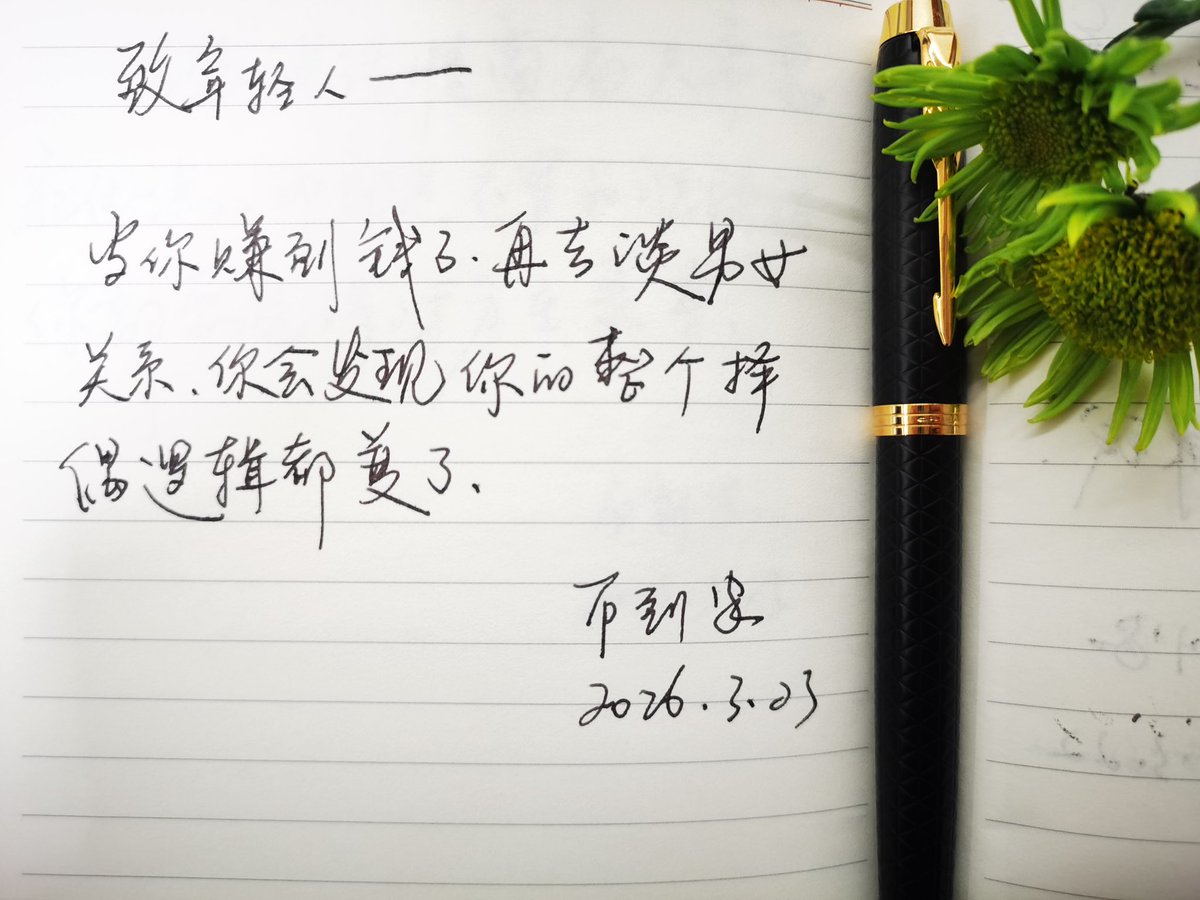 致年轻人——
当你赚到钱了.再去谈男女
关系、你会发现你的整个择
偶逻辑都变了.
2026.3.23